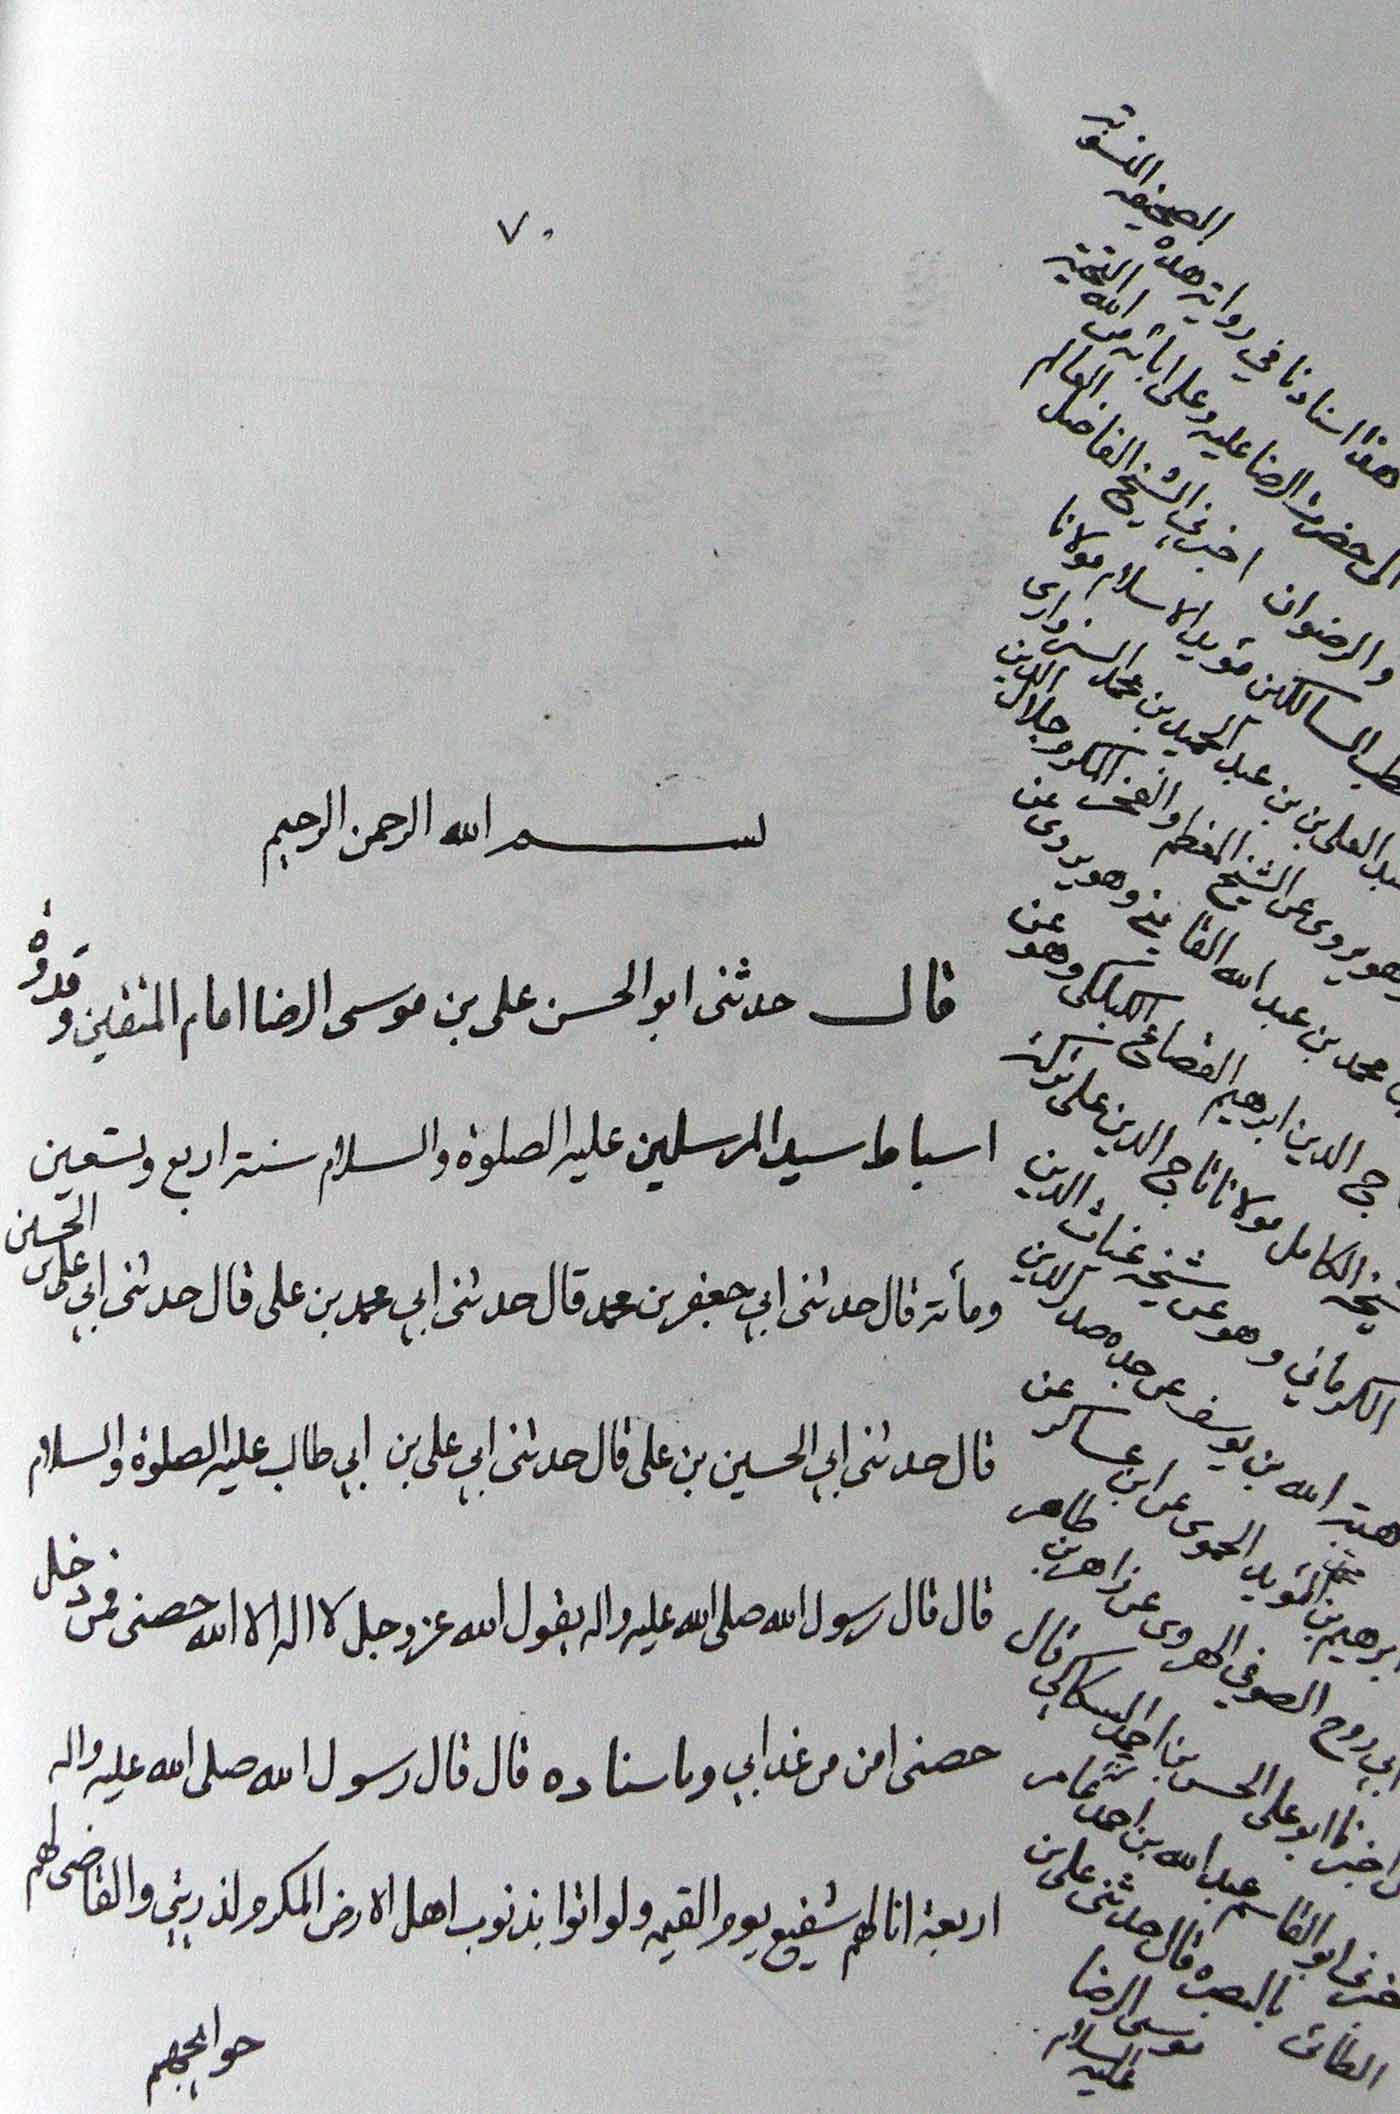 ٧٠
بسم الله الرحمن الرحيم
قال حدثنى ابو الحسن على بن موسى الرضا امام المتقين و قدوة
اسباط سيد المرسلين عليه الصلوة والسلام سنة اربع وتسعين
ومأتة قال حدثنى ابي جعفر بن محمد قال حدثنى ابي محمد بن على قال حدثنى ابي على بن الحسين
قال حدثنى ابي الحسين بن على قال حدثنى ابي على بن ابي طالب عليه الصلوة والسلام
قال قال رسول الله صلى الله عليه واله يقول الله عز وجل لا اله الا الله حصنى فمن دخل
حصنى امن من عذابي وباسناده قال قال رسول الله صلى الله عليه واله
اربعة انا لهم شفيع يوم القيمه ولو اتوا بذنوب اهل الارض المكرم لذريتي والقاضى لهم
حوايجهم
هذا اسنادنا في رواية هذه الصحيفه
الى حضرت الرضا عليه وعلى ابائه من الله التحية
والرضوان اخبرني الشيخ الفاضل العالم
السالكين مؤيد الاسلام مولانا
بن عبد الحميد بن محمد السبزوارى
وهو يروى عن الشيخ المعظم والفخر المكرم جلال الدين
محمد بن عبد الله القايني وهو يروى عن
الدين ابرهيم وهو عن
الكامل مولانا تاج الدين على
الكرماني وهو عن شيخه غياث الدين
هبة الله بن يوسف عن جده صدر الدين
ابرهيم بن المؤيد الحموى عن ابن عساكر عن
ابي روح الصوفي الهروى عن زاهر بن طاهر
اخبرنا ابو على الحسن بن احمد السكاكي قال
ابو القاسم عبد الله بن احمد عامر
الطائى بالبصره قال حدثنى على بن
موسى الرضا
عليه السلام